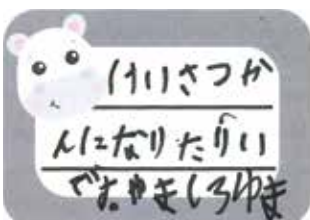 けいさつか
んになりたい
です。やましろゆま